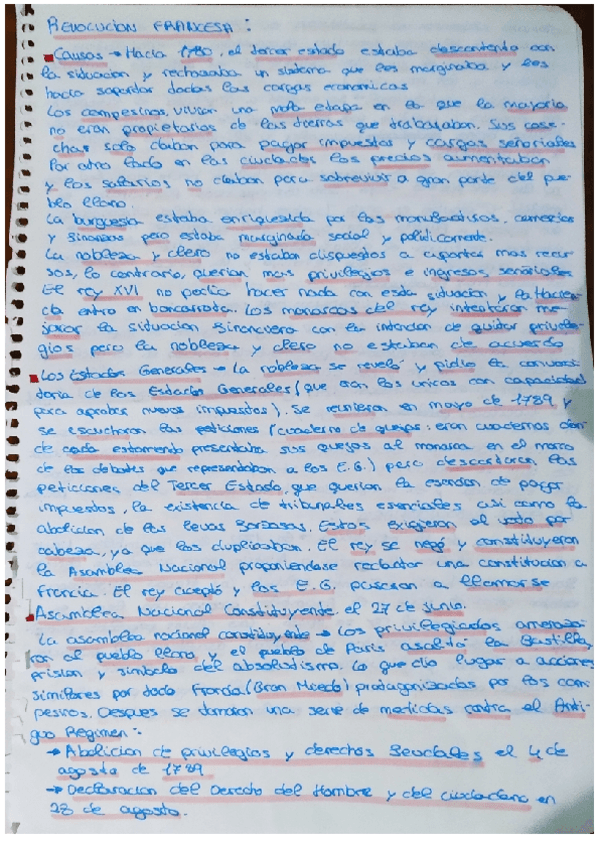 REVOLUCION FRANCESA:
Causas → Hacia 1780, el tercer estado estaba descontento con
la situacion y rechazaba un sistema que les marginaba y les
hacia soportar todas las cargas economicas
Los campesinos, vivian una mala etapa en la que la mayoria
no eran propietarios de las tierras que trabajaban. Sus cose-
chas solo daban para pagar impuestos y cargas señoriales
Por otro lado en las ciudades los precios aumentaban
y los salarios no daban para sobrevivir a gran parte del pue-
blo llano.
La burguesia estaba enriquecida por las manufacturas, comercios
y finanzas pero estaba marginada social y politicamente.
La nobleza y clero no estaban dispuestos a aportar mas recur
sos, lo contrario, querian mas privilegios e ingresos señoriales
El rey XVI no podia hacer nada con esta situacion y la Hacien-
da entro en bancarrota. Los monarcas del rey intentaron me
jorar la situacion financiera con la intencion de quitar privile-
gios pero la nobleza y clero no estaban de acuerdo
Los Estados Generales → La nobleza se reveló y pidio la convoca
toria de los Estados Generales (que eran los unicos con capacidad
para aprobar nuevos impuestos). Se reunieron en mayo de 1789 y
se escucharon las peticiones (cuaderno de quejas: eran cuadernos don-
de cada estamento presentaba sus quejas al monarca en el marco
de los debates que representaban a los E.G.) pero descartaron las
peticiones del Tercer Estado, que querian la exencion de pagar
impuestos, la existencia de tribunales esenciales asi como la
abolicion de las levas forzosas. Estos exigieron el voto por
cabeza, ya que los duplicaban. El rey se negó y constituyeron
la Asamblea Nacional proponiendose redactar una constitucion a
Francia. El rey aceptó y los E.G. pasaron a llamarse
Asamblea Nacional Constituyente el 27 de junio.
La asamblea nacional constituyente → Los privilegiados amenaza-
ron al pueblo llano y el pueblo de Paris asaltó la Bastilla,
prision y simbolo del absolutismo. Lo que dio lugar a acciones
similares por toda Francia (Gran Miedo) protagonizadas por los cam
pesinos. Despues se tomaron una serie de medidas contra el Anti-
guo Regimen:
→ Abolicion de privilegios y derechos feudales el 4 de
agosto de 1789
→ Declaracion del Derecho del Hombre y del ciudadano en
28 de agosto.